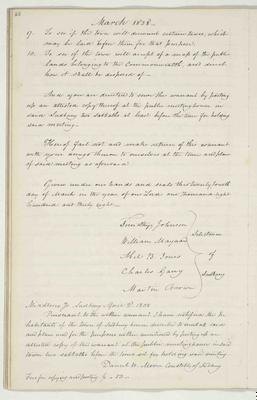 March 1838—
9. To see if the town will discount certain taxes, which
may be laid before them for that purpose.
10. To see if the town will accept of a map of the public
lands belonging to the Commonwealth, and direct
how it shall be disposed of—
And you are directed to serve this warrant by posting
up an attested copy thereof at the public meetinghouse in
said Sudbury two sabbaths at least before the time for holding
said meeting.
Hereof fail not and make return of this warrant
with your doings thereon to ourselves at the time and place
of said meeting as aforesaid.
Given under our hands and seals this twenty fourth
day of March in the year of our Lord one thousand eight
hundred and thirty eight—
Johnson
William Maynard
Abel B. Jones
Charles Gary
Martin
Selectmen
of
Sudbury
Middlesex Ss. Sudbury April 2d 1838
Pursuant to the within warrant I have notified the In-
habitants of the town of Sudbury herein directed to meet at said
and place and for the purposes within mentioned by posting up an
attested copy of this warrant at the public meetinghouse in said
town two sabbaths before the time set for holding said meeting
Moore Constable of Sudbury
Fees for copying and posting